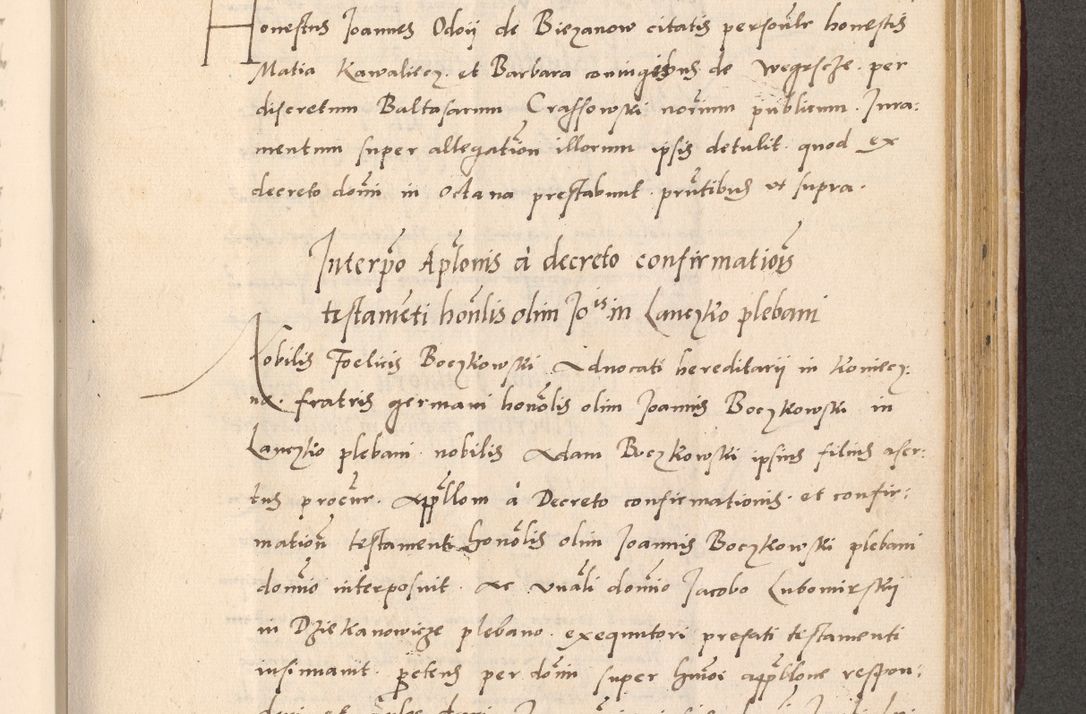 Honestus Joannes Odoij de Biezanow citatis personlr honestis
Matia Kawaliecz et Barbara coniugibus de Wegrsche per
discretum Baltasarum Crassowski norium publicum Jura:
mentum super allegation illorum ipsis detulit quod ex
decreto domi in octava prestabunt prutibus ut supra
Interpo Aplonis a decreto confirmationis
testameti honlis olim Jois in Lanczko plebani
Nobilis Foelicis Boczkowski Advocati hereditarij in Koniecz:
no fratris germani honolis olim Joannis Boczkowski in
Lanczko plebani nobilis Adam Boczkowski ipsius filius aser:
tus procur Appllom a Decreto confirmationis et confir:
mation testamenti honolis olim Joannis Boczkowski plebani
domno interposuit Ac vnali domno Jacobo Lubomirskij
in Dziekanowicze plebano exequutori prefati testamenti
insinuavit petens per domi super hmoi appllone respon: